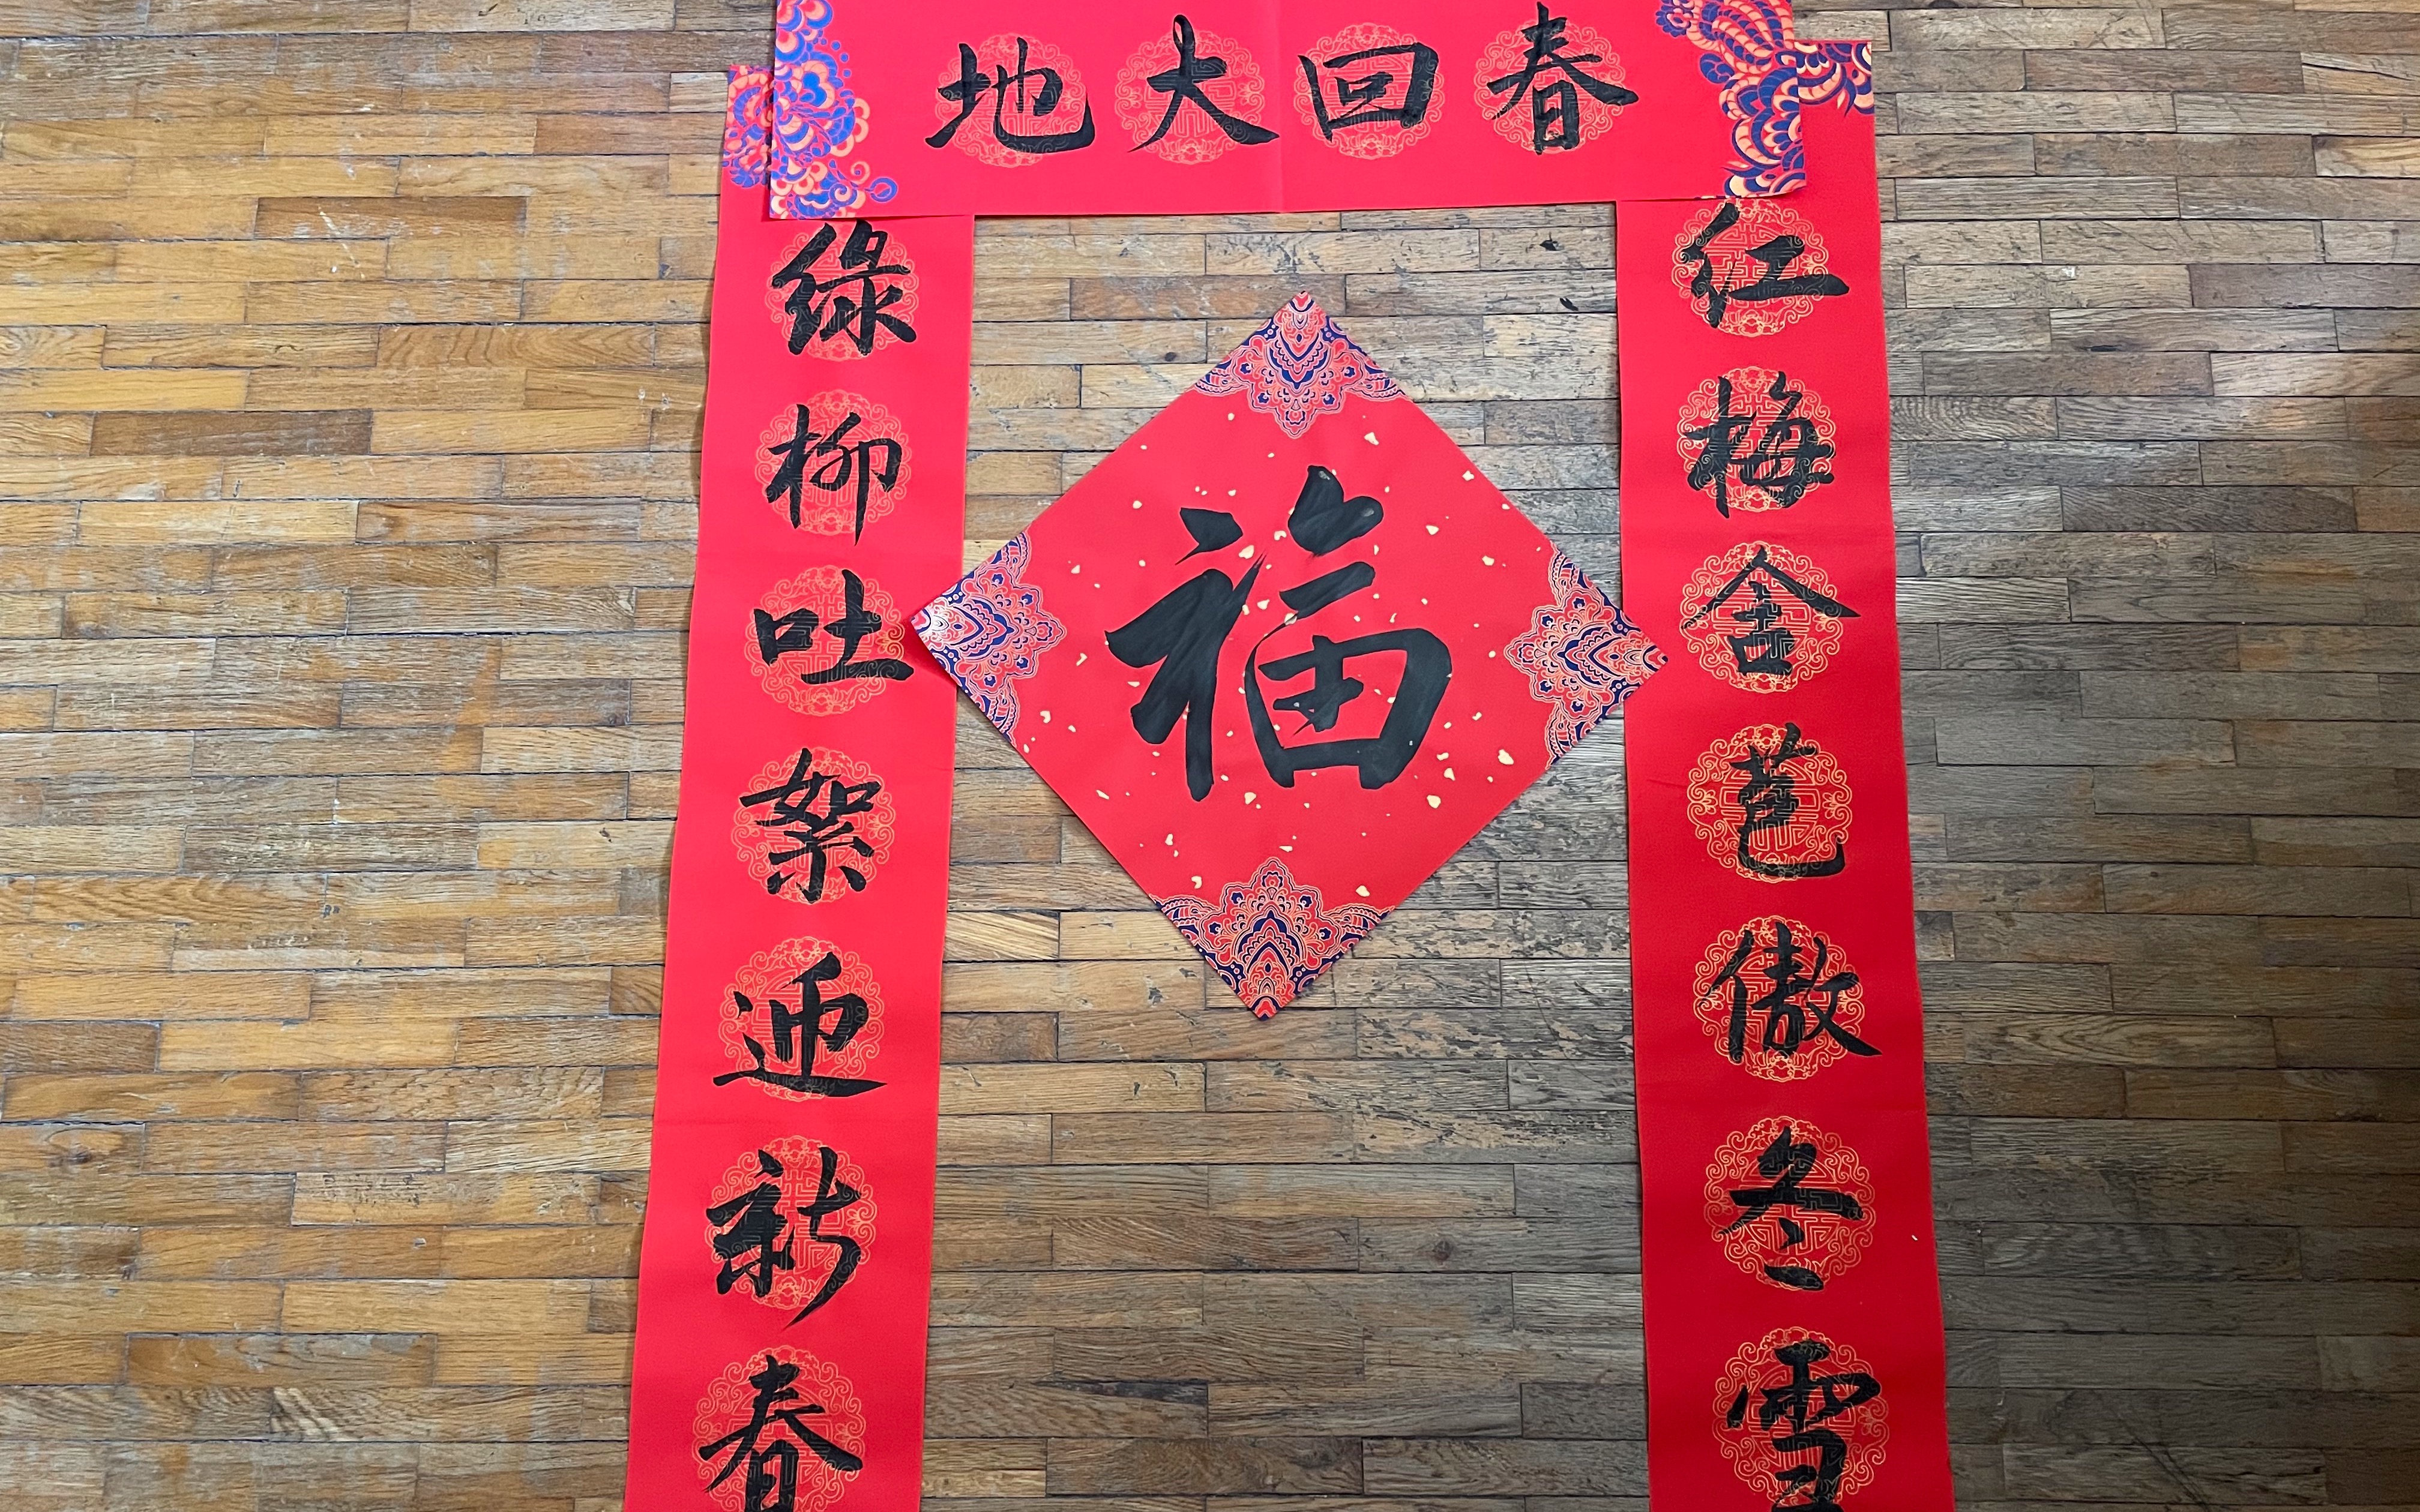 春回大地
红梅含苞傲冬雪
綠柳吐絮迎新春
福